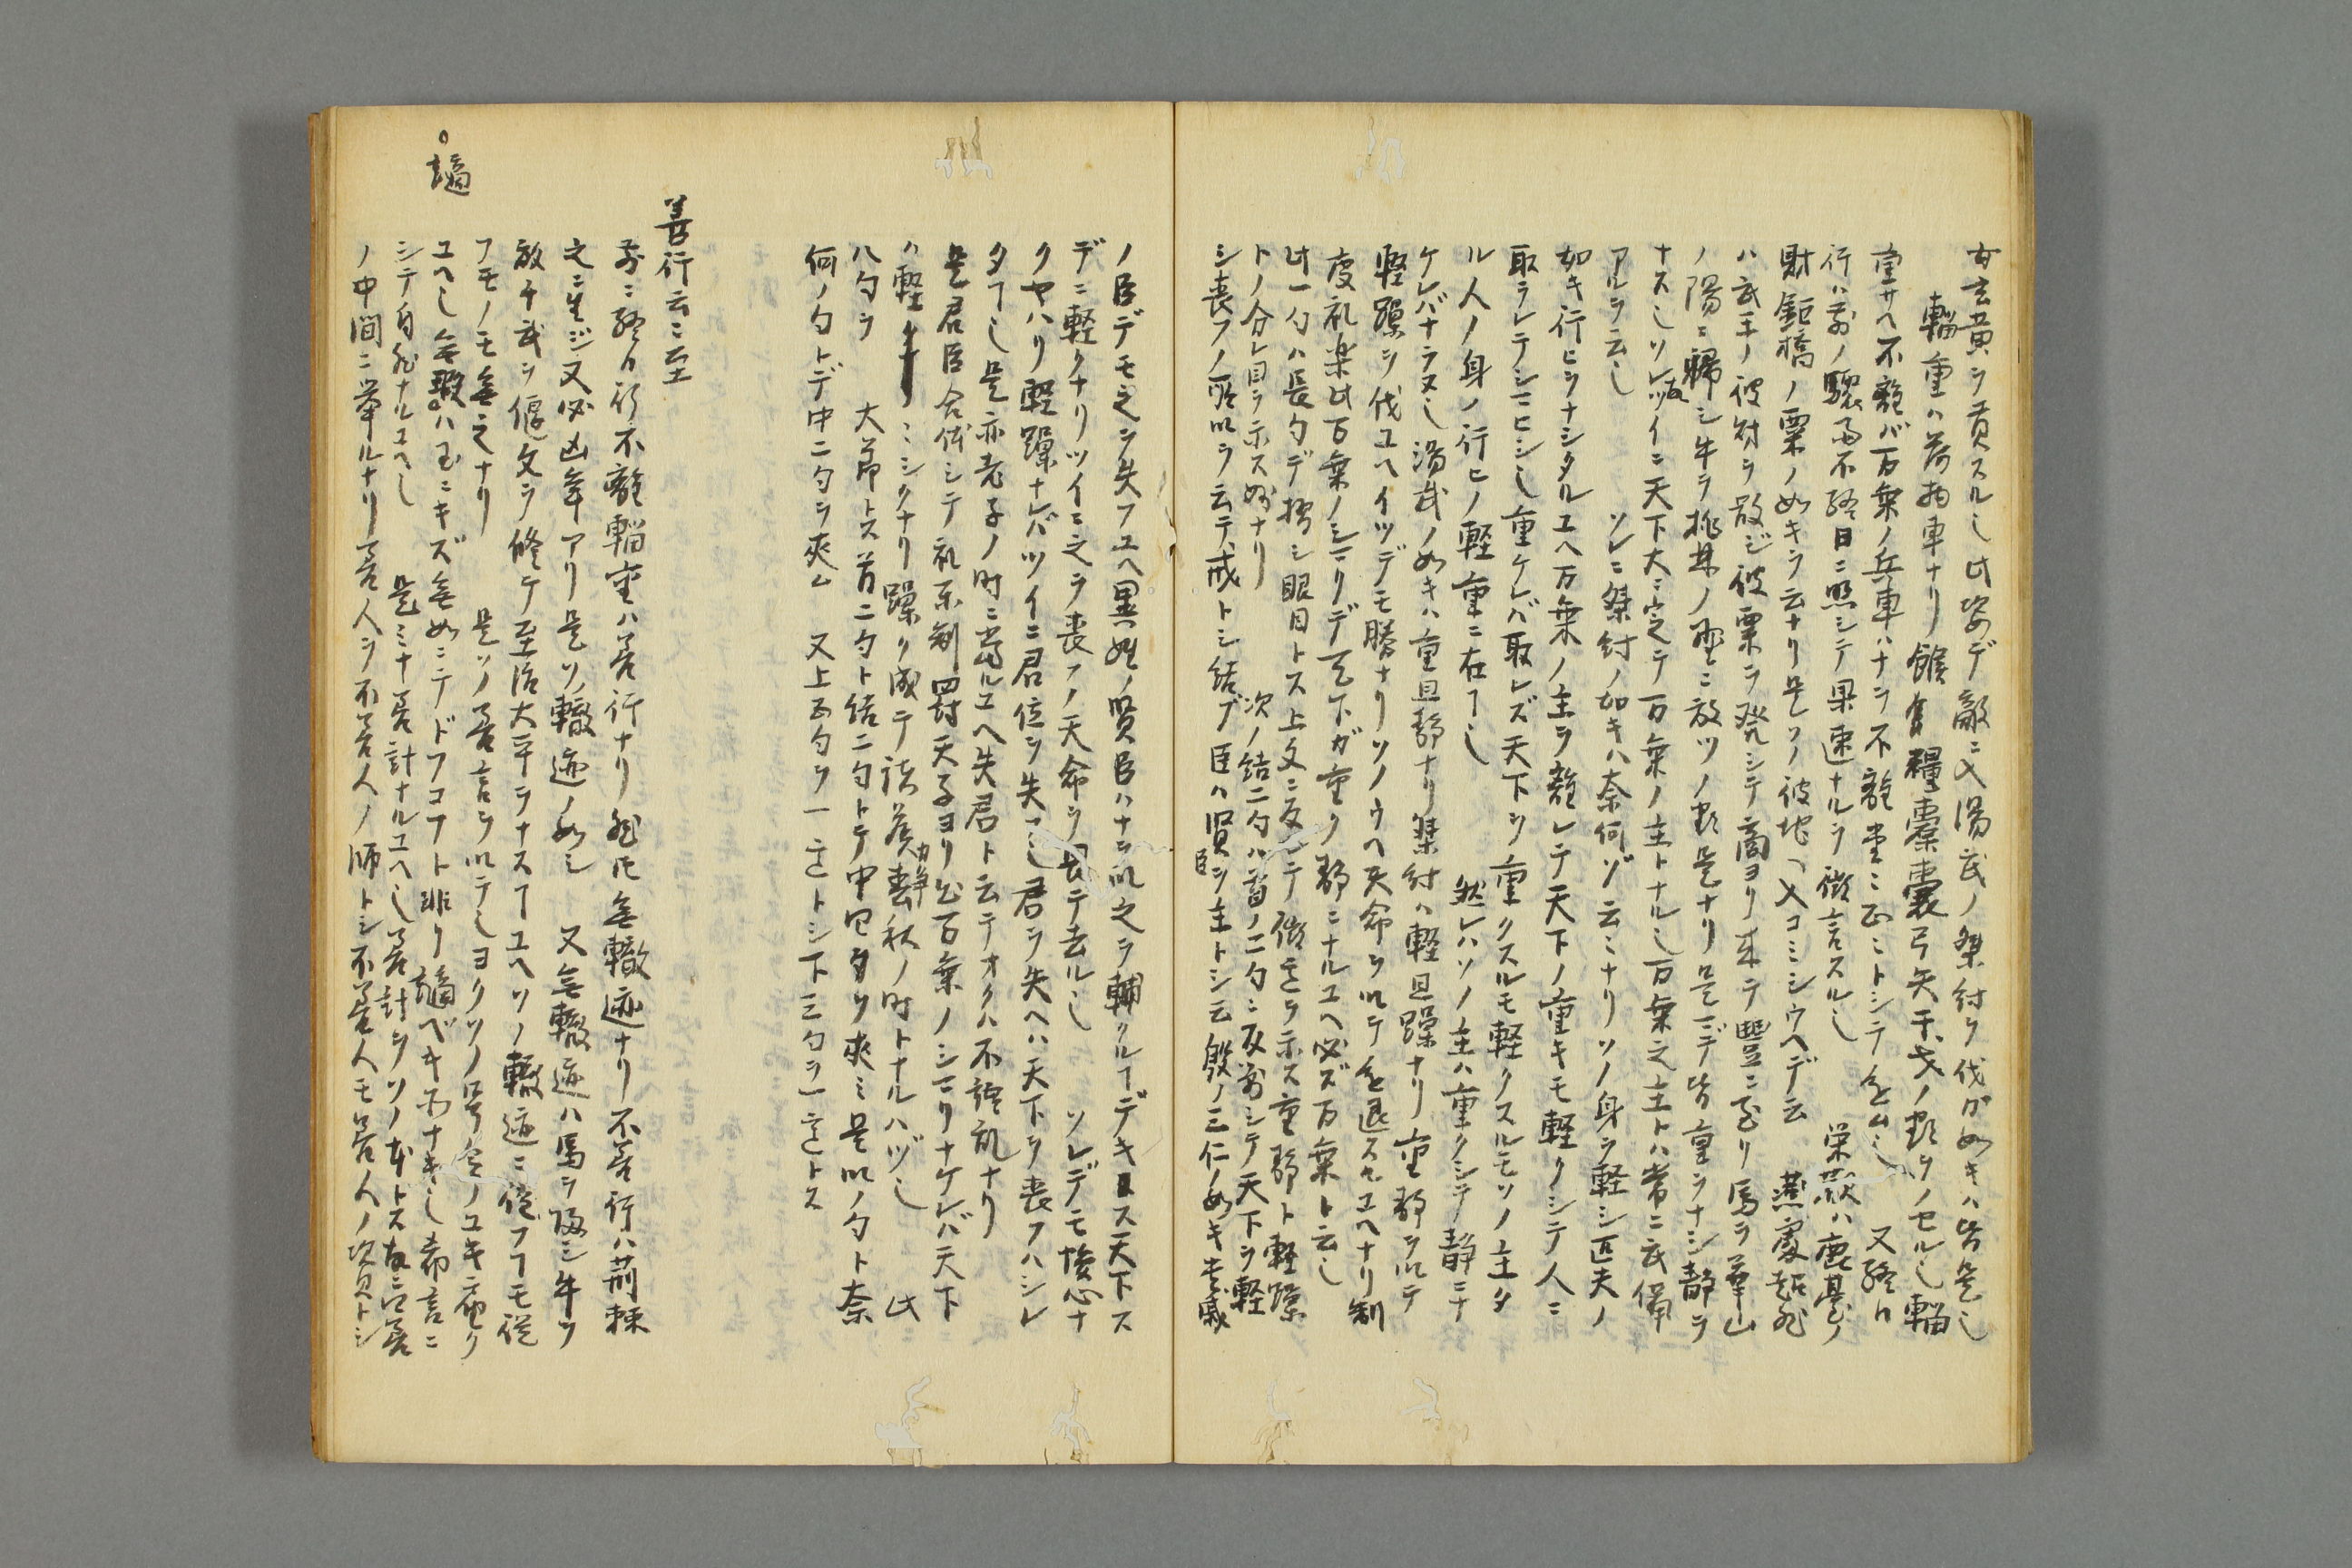 女玄黄ヲ貢スル也此姿デ敵ニ入湯武ノ桀紂ヲ伐ガ如キハ皆是也
輜重ハ荷物車ナリ餱食糧橐嚢弓矢干戈ノ類ヲノセル也輜
重サヘ不離バ万乗ノ兵車ハナヲ不離 又終日
行ハ前ノ驟雨不終日ニ照シテ果速ナルヲ微言スル也 栄観ハ鹿臺ノ
財鉅橋ノ粟ノ如キヲ云ナリ是ソノ彼地ヘ入コミシウヘデ云 燕處超然
ハ武王ノ彼財ヲ散ジ彼粟ヲ発シテ商ヨリ来テ豐ニ至リ馬ヲ華山
ノ陽ニ歸シ牛ヲ桃林ノ野ニ放ツノ類是ナリ是マデ皆重ヲナシ静ヲ
ナス也ソレ故ツイニ天下大ニ定テ万乗ノ主トナル也万乗之主トハ常ニ武備
アルヲ云也 ソレニ桀紂ノ如キハ奈何ゾ云ニナリソノ身ヲ軽シ匹夫ノ
如キ行ヒヲナシタルユヘ万乗ノ主ヲ離レテ天下ノ重キモ軽クシテ人ニ
取ラレテシマヒシ也重ケレバ取レズ天下ヲ重クスルモ軽クスルモソノ主タ
ル人ノ身ノ行ヒノ軽重ニ在ヿ也 然レハソノ主ハ重クシテ静ニナ
ケレバナラヌ也湯武ノ如キハ重且静ナリ桀紂ハ軽且躁ナリ重静ヲ以テ
軽躁ヲ伐ユヘイツデモ勝ナリソノウヘ天命ヲ以テ進退スルユヘナリ制
度礼楽此万乗ノシマリデ天下ガ重ク静ニナルユヘ必ズ万乗ト云也
此一句ハ長句デ摺シ眼目トス上文ニ反シテ微意ヲ示ス重静ト軽躁
トノ分レ目ヲ示ス妙ナリ 次ノ結二句ハ首ノ二句ニ反対シテ天下ヲ軽
シ喪フノ所以ヲ云テ戒トシ結ブ臣ハ賢臣ヲ主トシ云殷ノ三仁ノ如キ貴戚
ノ臣デモ之ヲ失フユヘ異姓ノ賢臣ハナヲ以之ヲ輔クルヿデキマス天下ス
デニ軽クナリツイニ之ヲ喪フノ天命ヲ畏テ去ル也 ソレデモ懐心ナ
クヤハリ軽躁ナレバツイニ君位ヲ失フ也君ヲ失ヘハ天下ヲ喪フハシレ
タヿ也是亦老子ノ時ニ當ルユヘ失君ト云テオクハ不語乱ナリ
是君臣合体シテ礼楽制罰天子ヨリ出万乗ノシマリナケレバ天下
ハ軽クナリ躁ク成テ諸侯春秋ノ時トナルハヅ也 此
八句ヲ 大節トス首二句ト結二句トデ中四句ヲ夾ミ是以ノ句ト奈
何ノ句トデ中二句ヲ夾ム 又上五句ヲ一意トシ下三句ヲ一意トス
善行云ニ至
前ニ終日行不離輜重ハ善行ナリ然ドモ無轍迹ナリ不善行ハ荊棘
之ニ生ジ又必凶年アリ是ソノ轍迹ノ如シ 又無轍迹ハ馬ヲ歸シ牛ヲ
放チ武ヲ偃文ヲ修テ至治大平ヲナスヿユヘソノ轍迹ニ從フヿモ從
フモノモ無之ナリ 是ソノ善言ヲ以テ也ヨクソノ号令ノユキ届ク
ユヘ也無瑕ハ玉ニキズ無如ニテドフコフト非リ謫ベキ所ナキ也希言ニ
シテ自然ナルユヘ也 是ミナ善計ナルユヘ也善計ヲソノ本トス故ニ言善
ノ中間ニ挙ルナリ善人ヲ不善人ノ師トシ不善人モ善人ノ資トシ
。謫